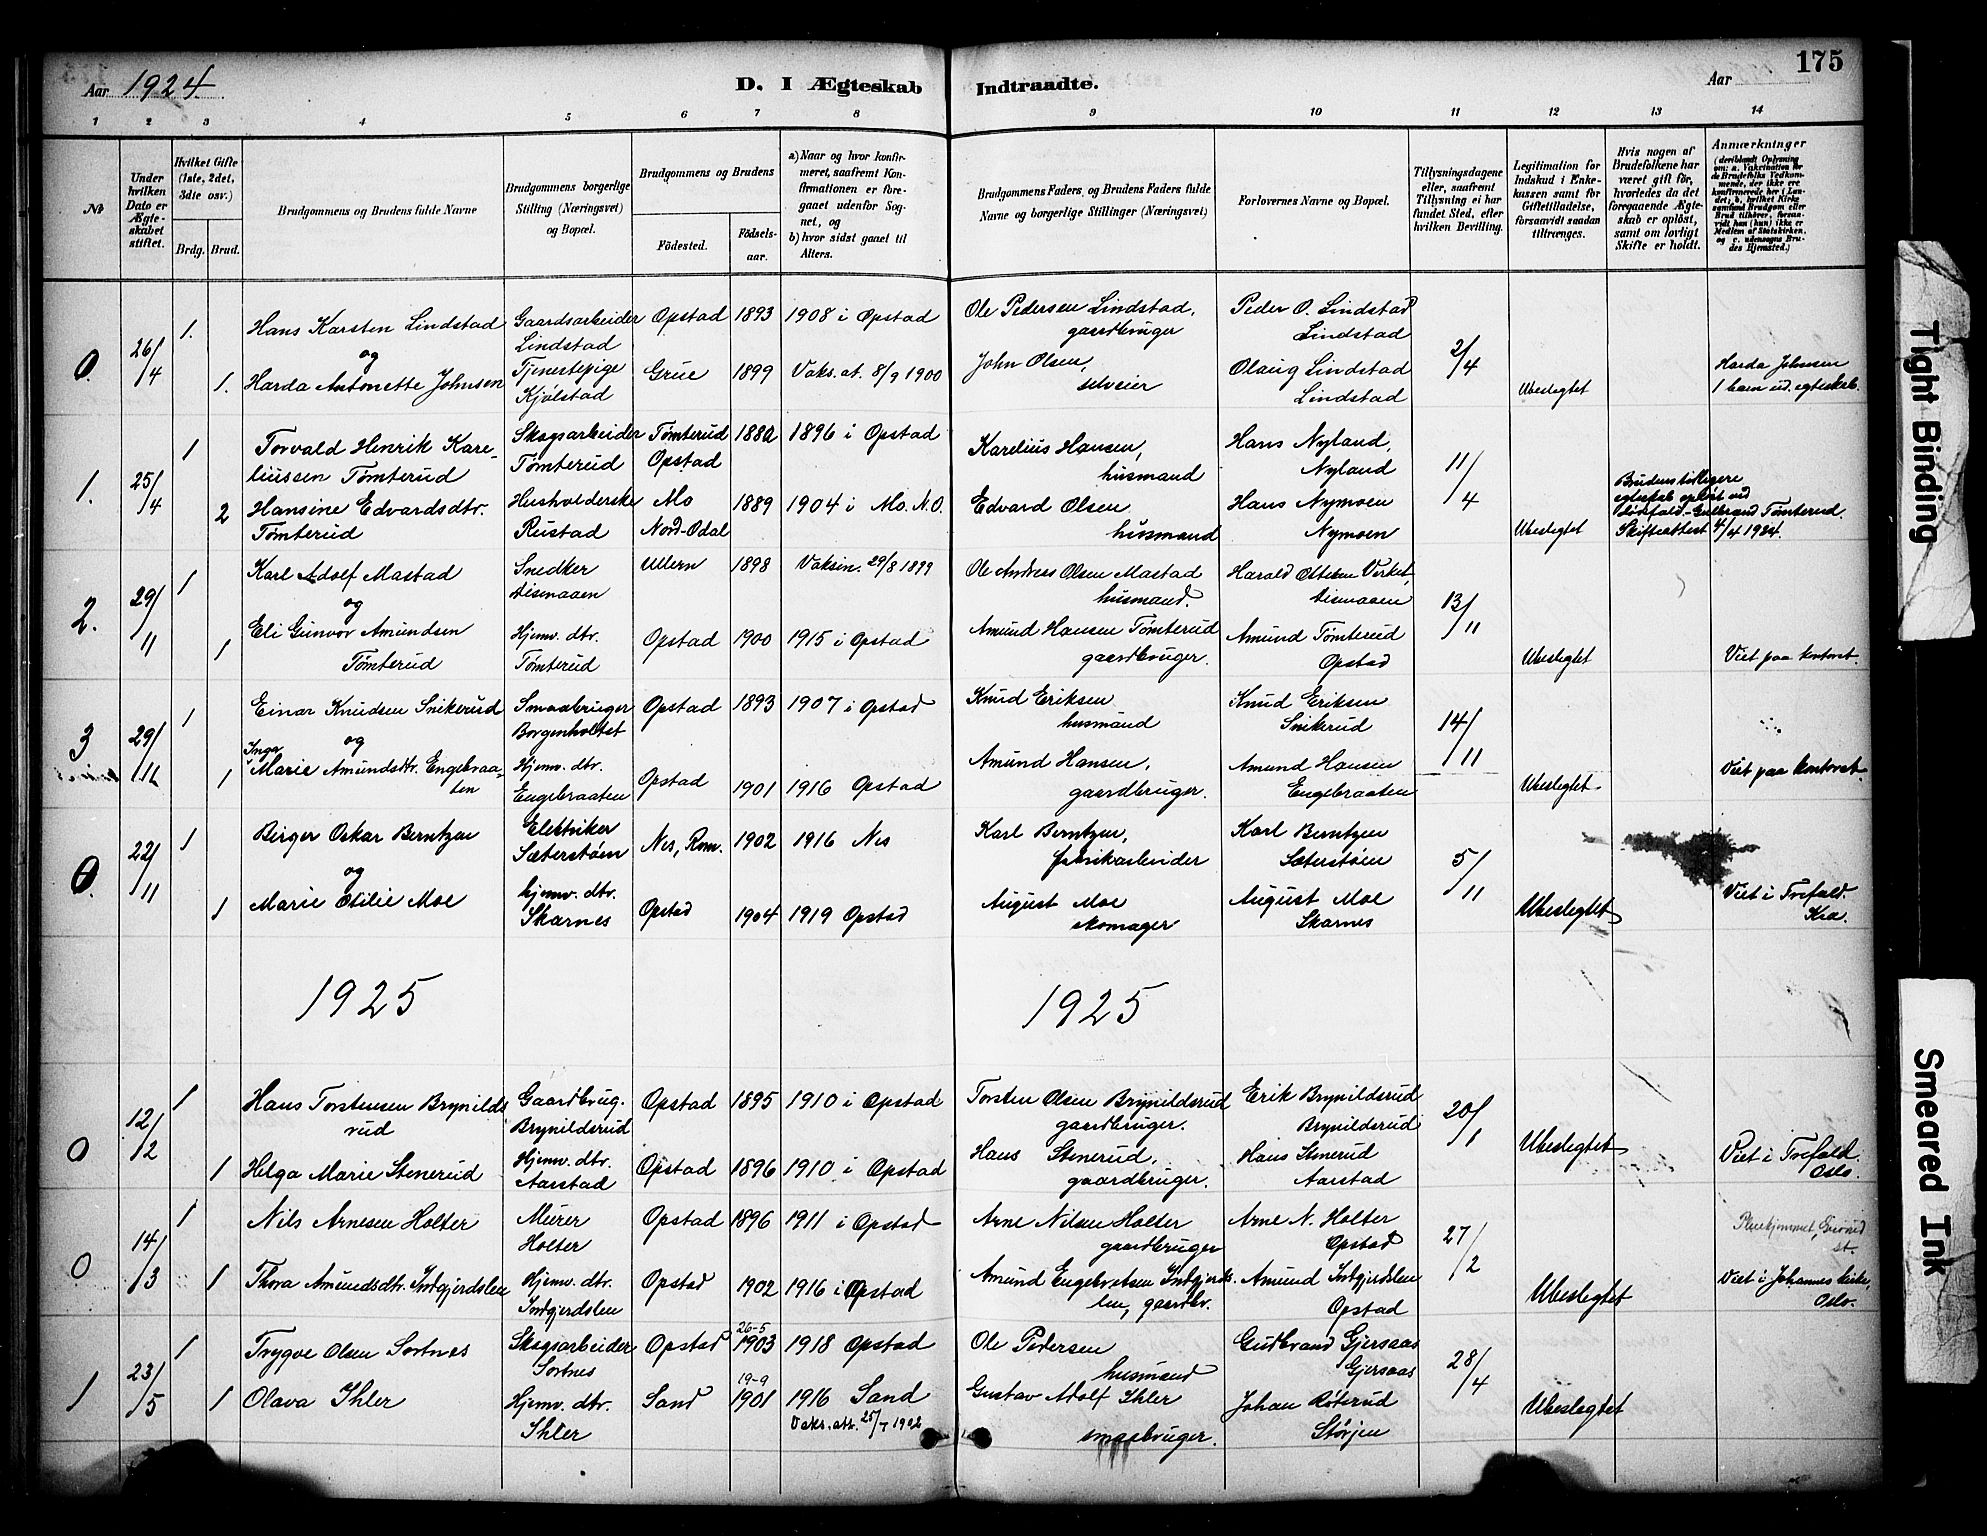 175
Aar 1924.
D. I Ægteskab Indtraadte.
Aar
1 2 3 4 5 6 7 8 9 10 11 12 13 14
№
Under hvilken Dato er Ægteskabet stiftet.
Hvilket Gifte (1ste, 2det, 3die osv.)
Brdg. Brud.
Brudgommens og Brudens fulde Navne
Brudgommens borgerlige Stilling (Næringsvei) og Bopæl.
Brudgommens og Brudens
Födested. Födsels-aar.
a) Naar og hvor konfirmeret, saafremt Konfirmationen er foregaaet udenfor Sognet, og
b) hvor sidst gaaet til Alters.
Brudgommens Faders, og Brudens Faders fulde Navne og borgerlige Stillinger (Næringsvei)
Forlovernes Navne og Bopæl.
Tillysningsdagene eller, saafremt Tillysning ei har fundet Sted, efter hvilken Bevilling.
Legitimation for Indskud i Enkekassen samt for Giftetilladelse, forsaavidt saadan tiltrænges.
Hvis nogen af Brudefolkene har været gift før, hvorledes da det foregaaende Ægteskab er oplöst, samt om lovligt Skifte er holdt.
Anmærkninger
(deriblandt Oplysning om: a. Vakcination for de Brudefolks Vedkommende, der ikke ere konfirmerede her i Landet; b. hvilket Kirkesamfund Brudgom eller Brud tilhører, forsavidt han (hun) ikke er Medlem af Statskirken, og c. udensogns Brudes Hjemsted.)
0. 26/4 1. Hans Karsten Lindstad Gaardsarbeider Opstad 1893 1908 i Opstad Ole Pedersen Lindstad, Peder O. Lindstad 2/4
og Lindstad gaardbruger Lindstad
1. Harda Antonette Johnsen Tjenestepige Grue 1899 Vaks.at. 8/9 1900 John Olsen, Olaug Lindstad Harda Johnsen
Kjölstad selveier Lindstad Ubeslegtet 1 barn ud. egteskab.
1. 25/4 1 Torvald Henrik Kare- Skogsarbeider Tømterud 1882 1896 i Opstad Karelius Hansen, Hans Nyland, 11/4
liussen Tømterud Tømterud Opstad husmand Nyland Brudens tidligere
2 Hansine Edvardsdtr. Husholderske Mo 1889 1904 i Mo. N.O. Edvard Olsen Hans Nymoen egteskab opløst ved
Tømterud Rustad Nord-Odal husmand Nymoen Ubeslegtet dødsfald. Gulbrand Tømterud.
Skifteattest 4/4 1924.
2. 29/11 1 Karl Adolf Mastad Snedker Ullern 1898 Vaksin. 29/8 1899 Ole Andreas Olsen Mastad Harald Ottesen Verket, 13/11
og Disenaaen husmand. Disenaaen
1 Eli Gunvor Amundsen Hjemv. dtr. Opstad 1900 1915 i Opstad Amund Hansen Tømterud Amund Tømterud
Tømterud Tømterud gaardbruger. Opstad Ubeslegtet Viet paa kontoret.
3 29/11 1 Einar Knudsen Snikerud Smaabruger Opstad 1893 1907 i Opstad Knud Eriksen Knud Eriksen 14/11
og Borgenholtet husmand Snikerud
1 Inga Marie Amundsdtr. Engebraa- Hjemv. dtr. Opstad 1901 1916 Opstad Amund Hansen, Amund Hansen Viet paa kontoret
ten Engebraaten gaardbruger. Engebraaten Ubeslegtet.
0. 22/11 1 Birger Oskar Berntzen Elektriker Nes, Rom. 1902 1916 Nes Karl Berntzen, Karl Berntzen 5/11
og Sæterstøen fabrikarbeider Sæterstøen
1 Marie Otilie Moe hjemv. dtr. Opstad 1904 1919 Opstad August Moe August Moe Ubeslegtet Viet i Trefold.
Skarnes skomager Skarnes Kra.
1925 1925
0 12/2 1 Hans Torstensen Brynilds Gaardbrug. Opstad 1895 1910 i Opstad Torsten Olsen Brynildsrud Erik Brynildsrud 20/1
rud Brynildsrud gaardbruger. Brynildsrud
1 Helga Marie Stenerud Hjemv. dtr. Opstad 1896 1910 i Opstad Hans Stenerud, Hans Stenerud Ubeslegtet Viet i Trefold.
Aarstad gaardbruger. Aarstad Oslo.
0 14/3 1 Nils Arnesen Holter Murer Opstad 1896 1911 i Opstad Arne Nilsen Holter Arne N. Holter 27/2
Holter gaardbruger Opstad
1 Thora Amundsdtr. Indgjerdslen Hjemv. dtr. Opstad 1902 1916 i Opstad Amund Engebretsen Indgjerds- Amund Indgjerdslen Ubeslegtet Viet i Johannes kirke,
Indgjerdslen len, gaardbr. Opstad Oslo.
1 23/5 1 Trygve Olsen Sortnes Skogsarbeider Opstad 26-5 1903 1918 Opstad Ole Pedersen Gudbrand Gjersaas 28/4
Sortnes husmand Gjersaas
1 Olava Ihler Hjemv. dtr. Sand 19-9 1901 1916 Sand Gustav Adolf Ihler Johan Røterud Ubeslegtet
Ihler Vaks. att. 25/7 1902 smaabruger. Størjen
Tight Binding
Smeared Ink